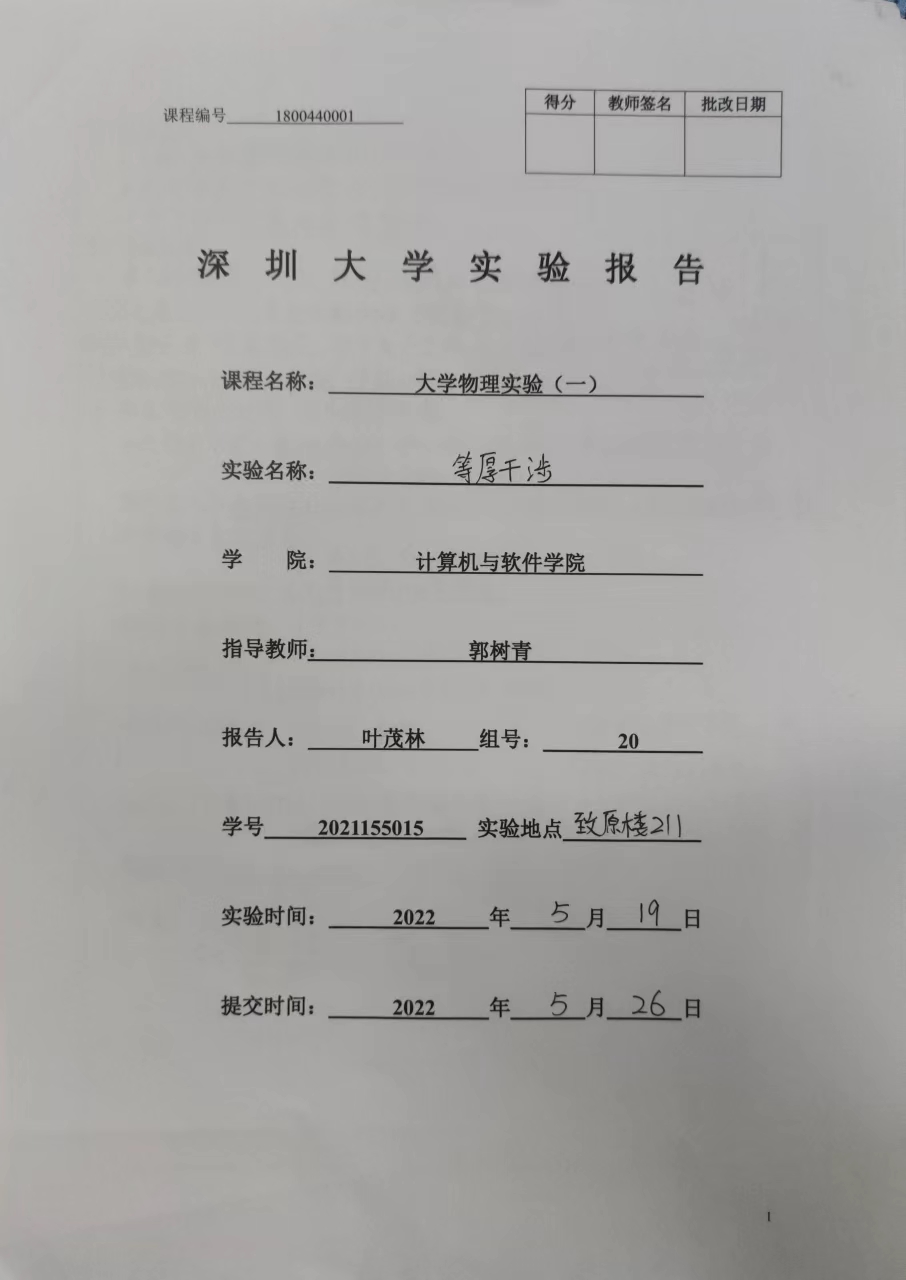 课程编号 1800440001
得分 教师签名 批改日期
深圳大学实验报告
课程名称：大学物理实验（一）
实验名称：等厚干涉
学 院：计算机与软件学院
指导教师：郭树青
报告人：叶茂林 组号：20
学号 2021155015 实验地点 致原楼211
实验时间：2022 年 5 月 19 日
提交时间：2022 年 5 月 26 日
1